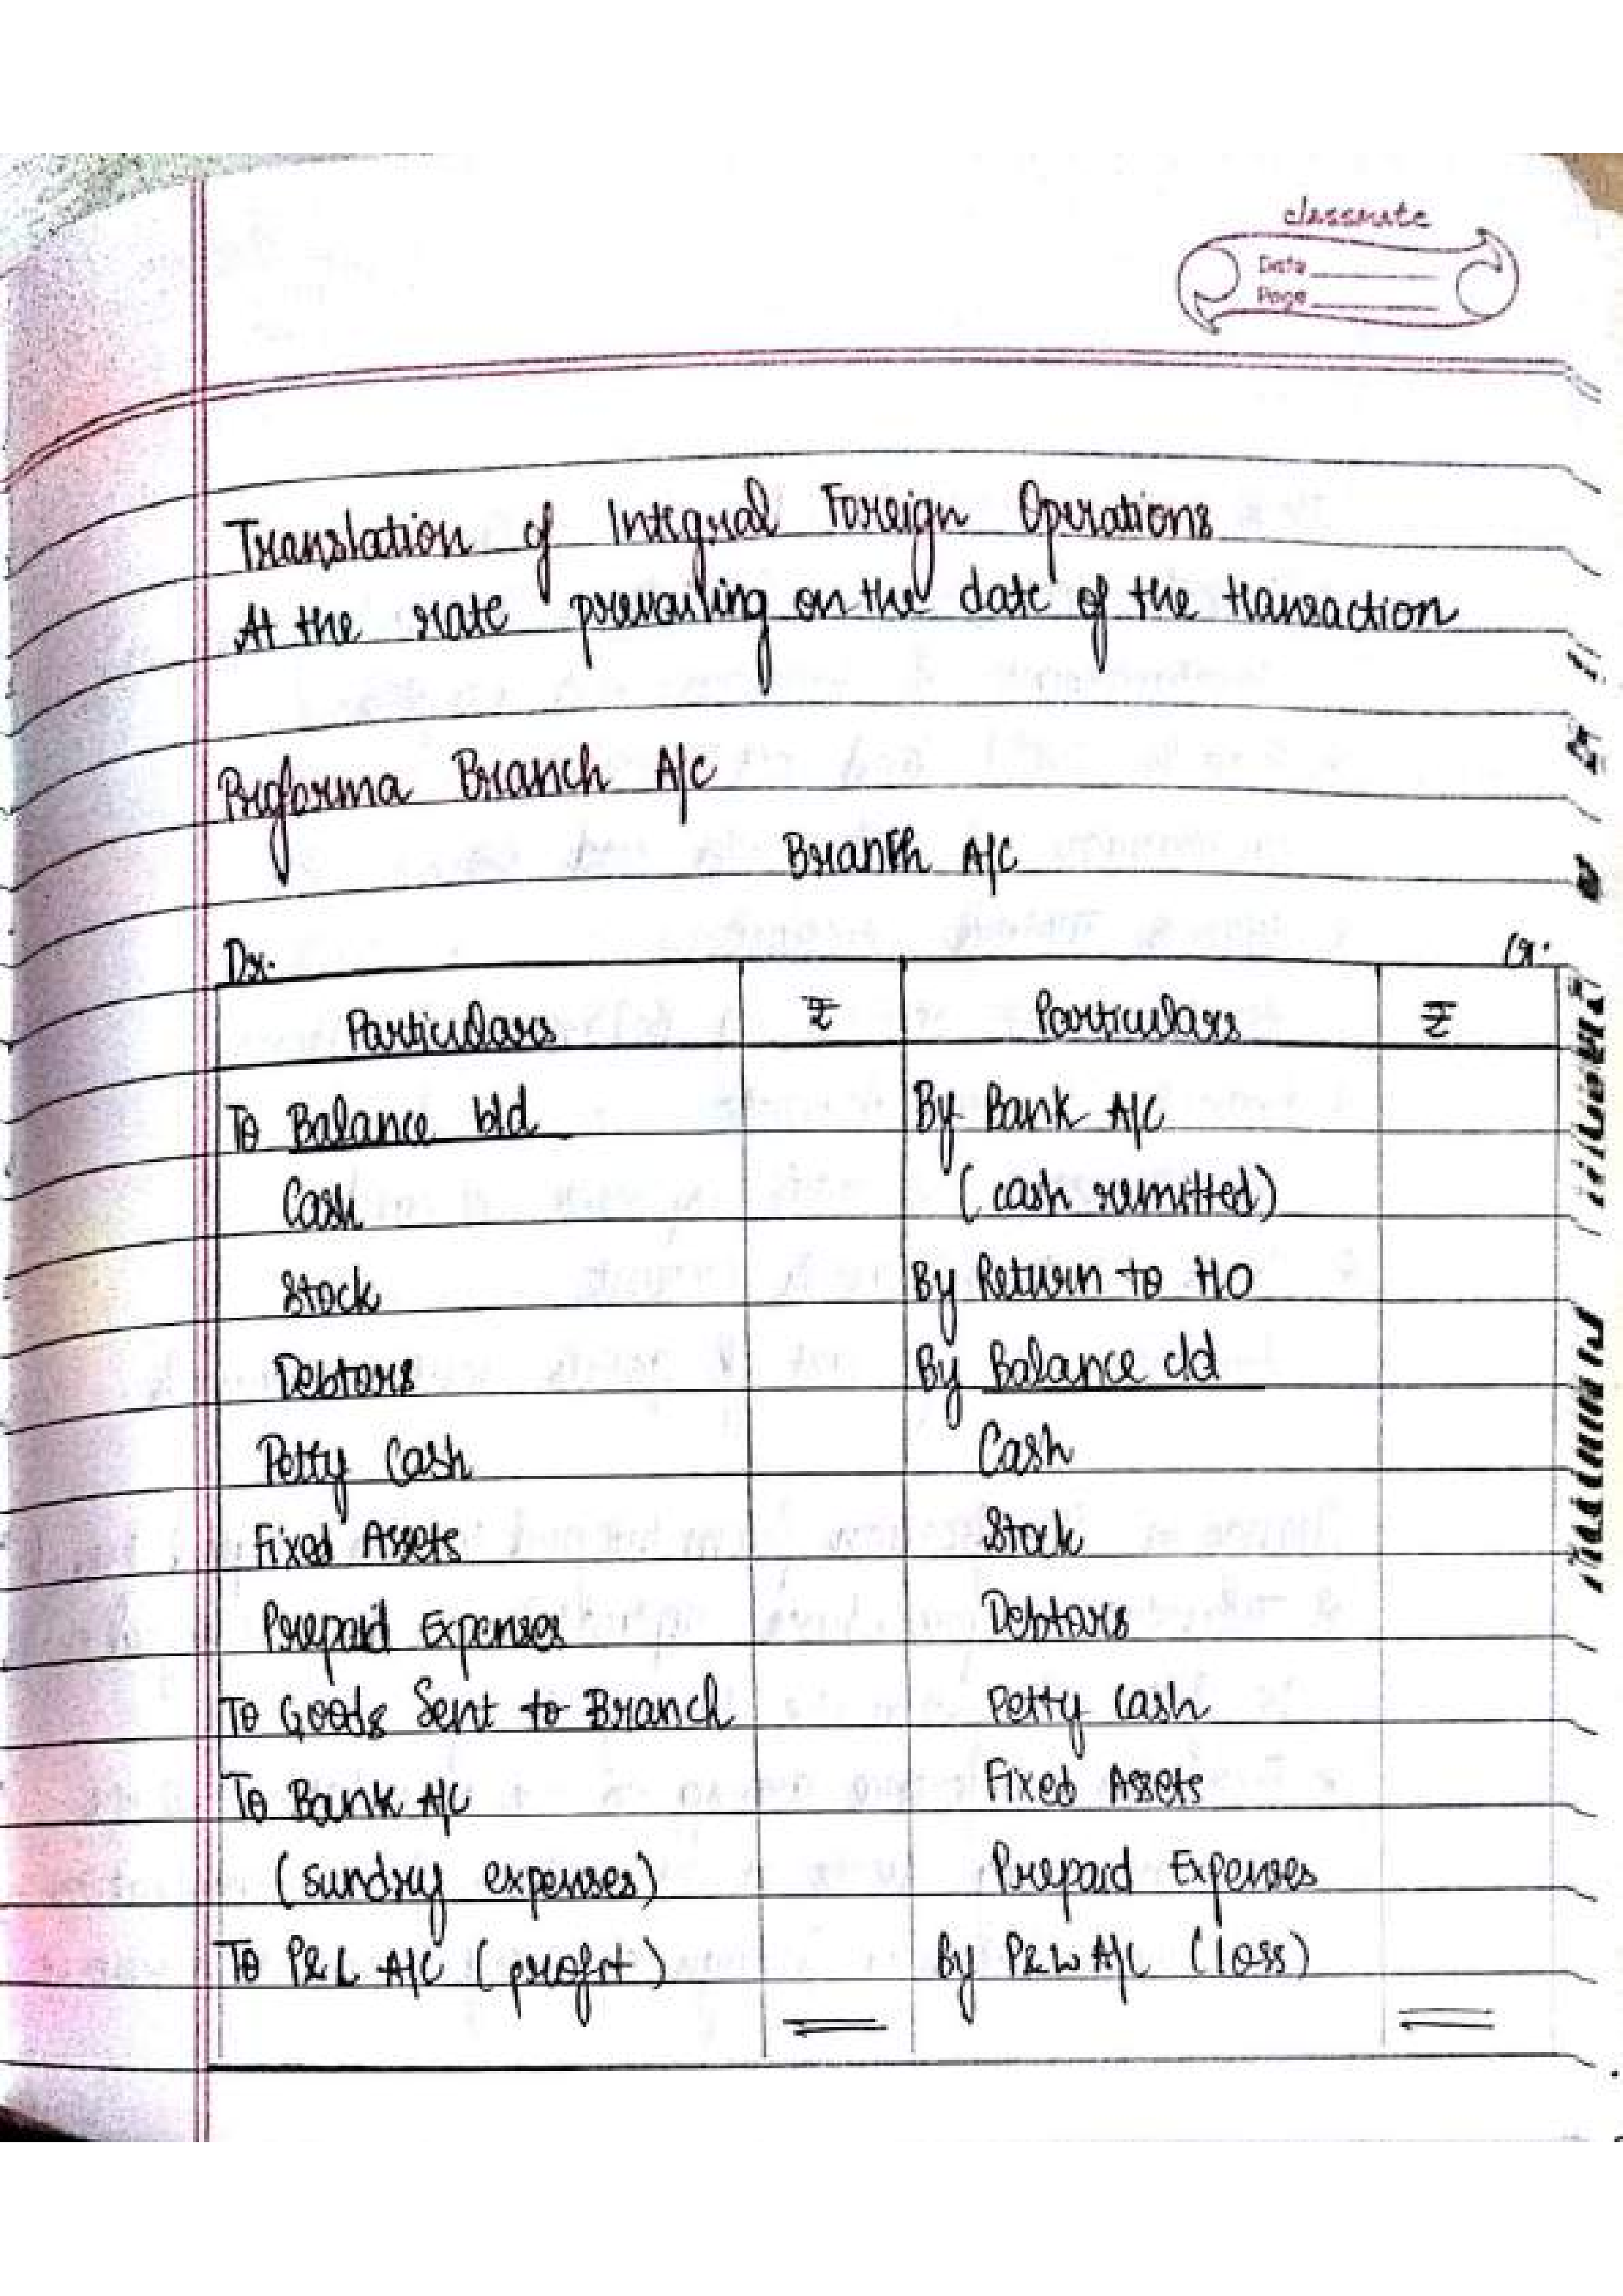 classmate
Date
Page
Translation of Integral Foreign Operations
At the rate prevailing on the date of the transaction
Proforma Branch A/c
Branch A/C
Dr. Cr.
Particulars ₹ Particulars ₹
To Balance b/d By Bank A/C
Cash (cash remitted)
Stock By Return to HO
Debtors By Balance c/d
Petty Cash Cash
Fixed Assets Stock
Prepaid Expenses Debtors
To Goods Sent to Branch Petty Cash
To Bank A/C Fixed Assets
(sundry expenses) Prepaid Expenses
To P&L A/C (profit) By P&L A/C (loss)